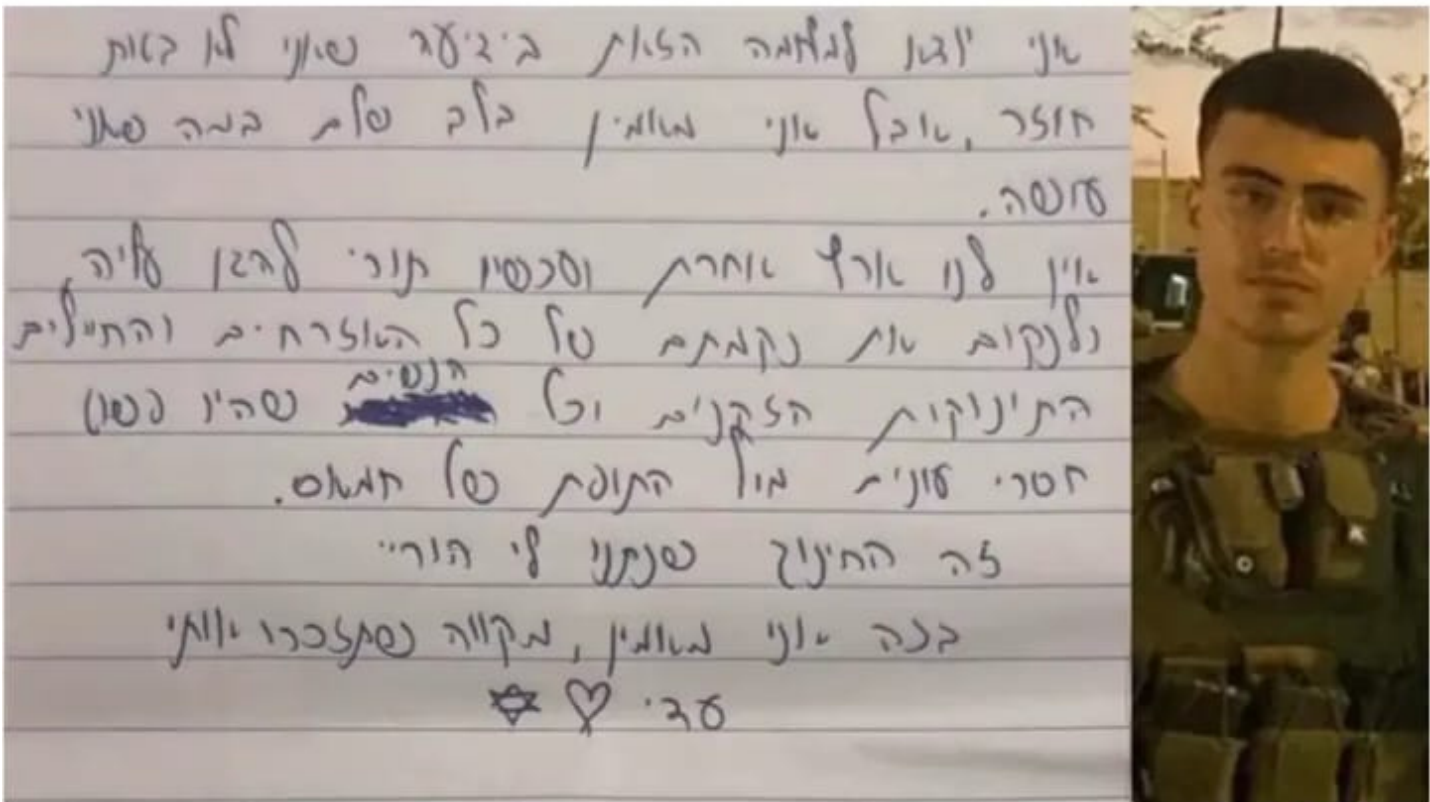 אני יוצא למלחמה הזאת בידיעה שאני לא בטוח
חוזר, אבל אני מאמין בלב שלם במה שאני
עושה.
אין לנו ארץ אחרת ועכשיו תורי להגן עליה
ולנקום את נקמתם של כל האזרחים והחיילים
התינוקות הזקנים וכל הנשים שהיו פשוט
חסרי אונים מול התופת של חמאס.
זה החינוך שנתנו לי הוריי
בזה אני מאמין, מקווה שתזכרו אותי
עדי ♡ ✡